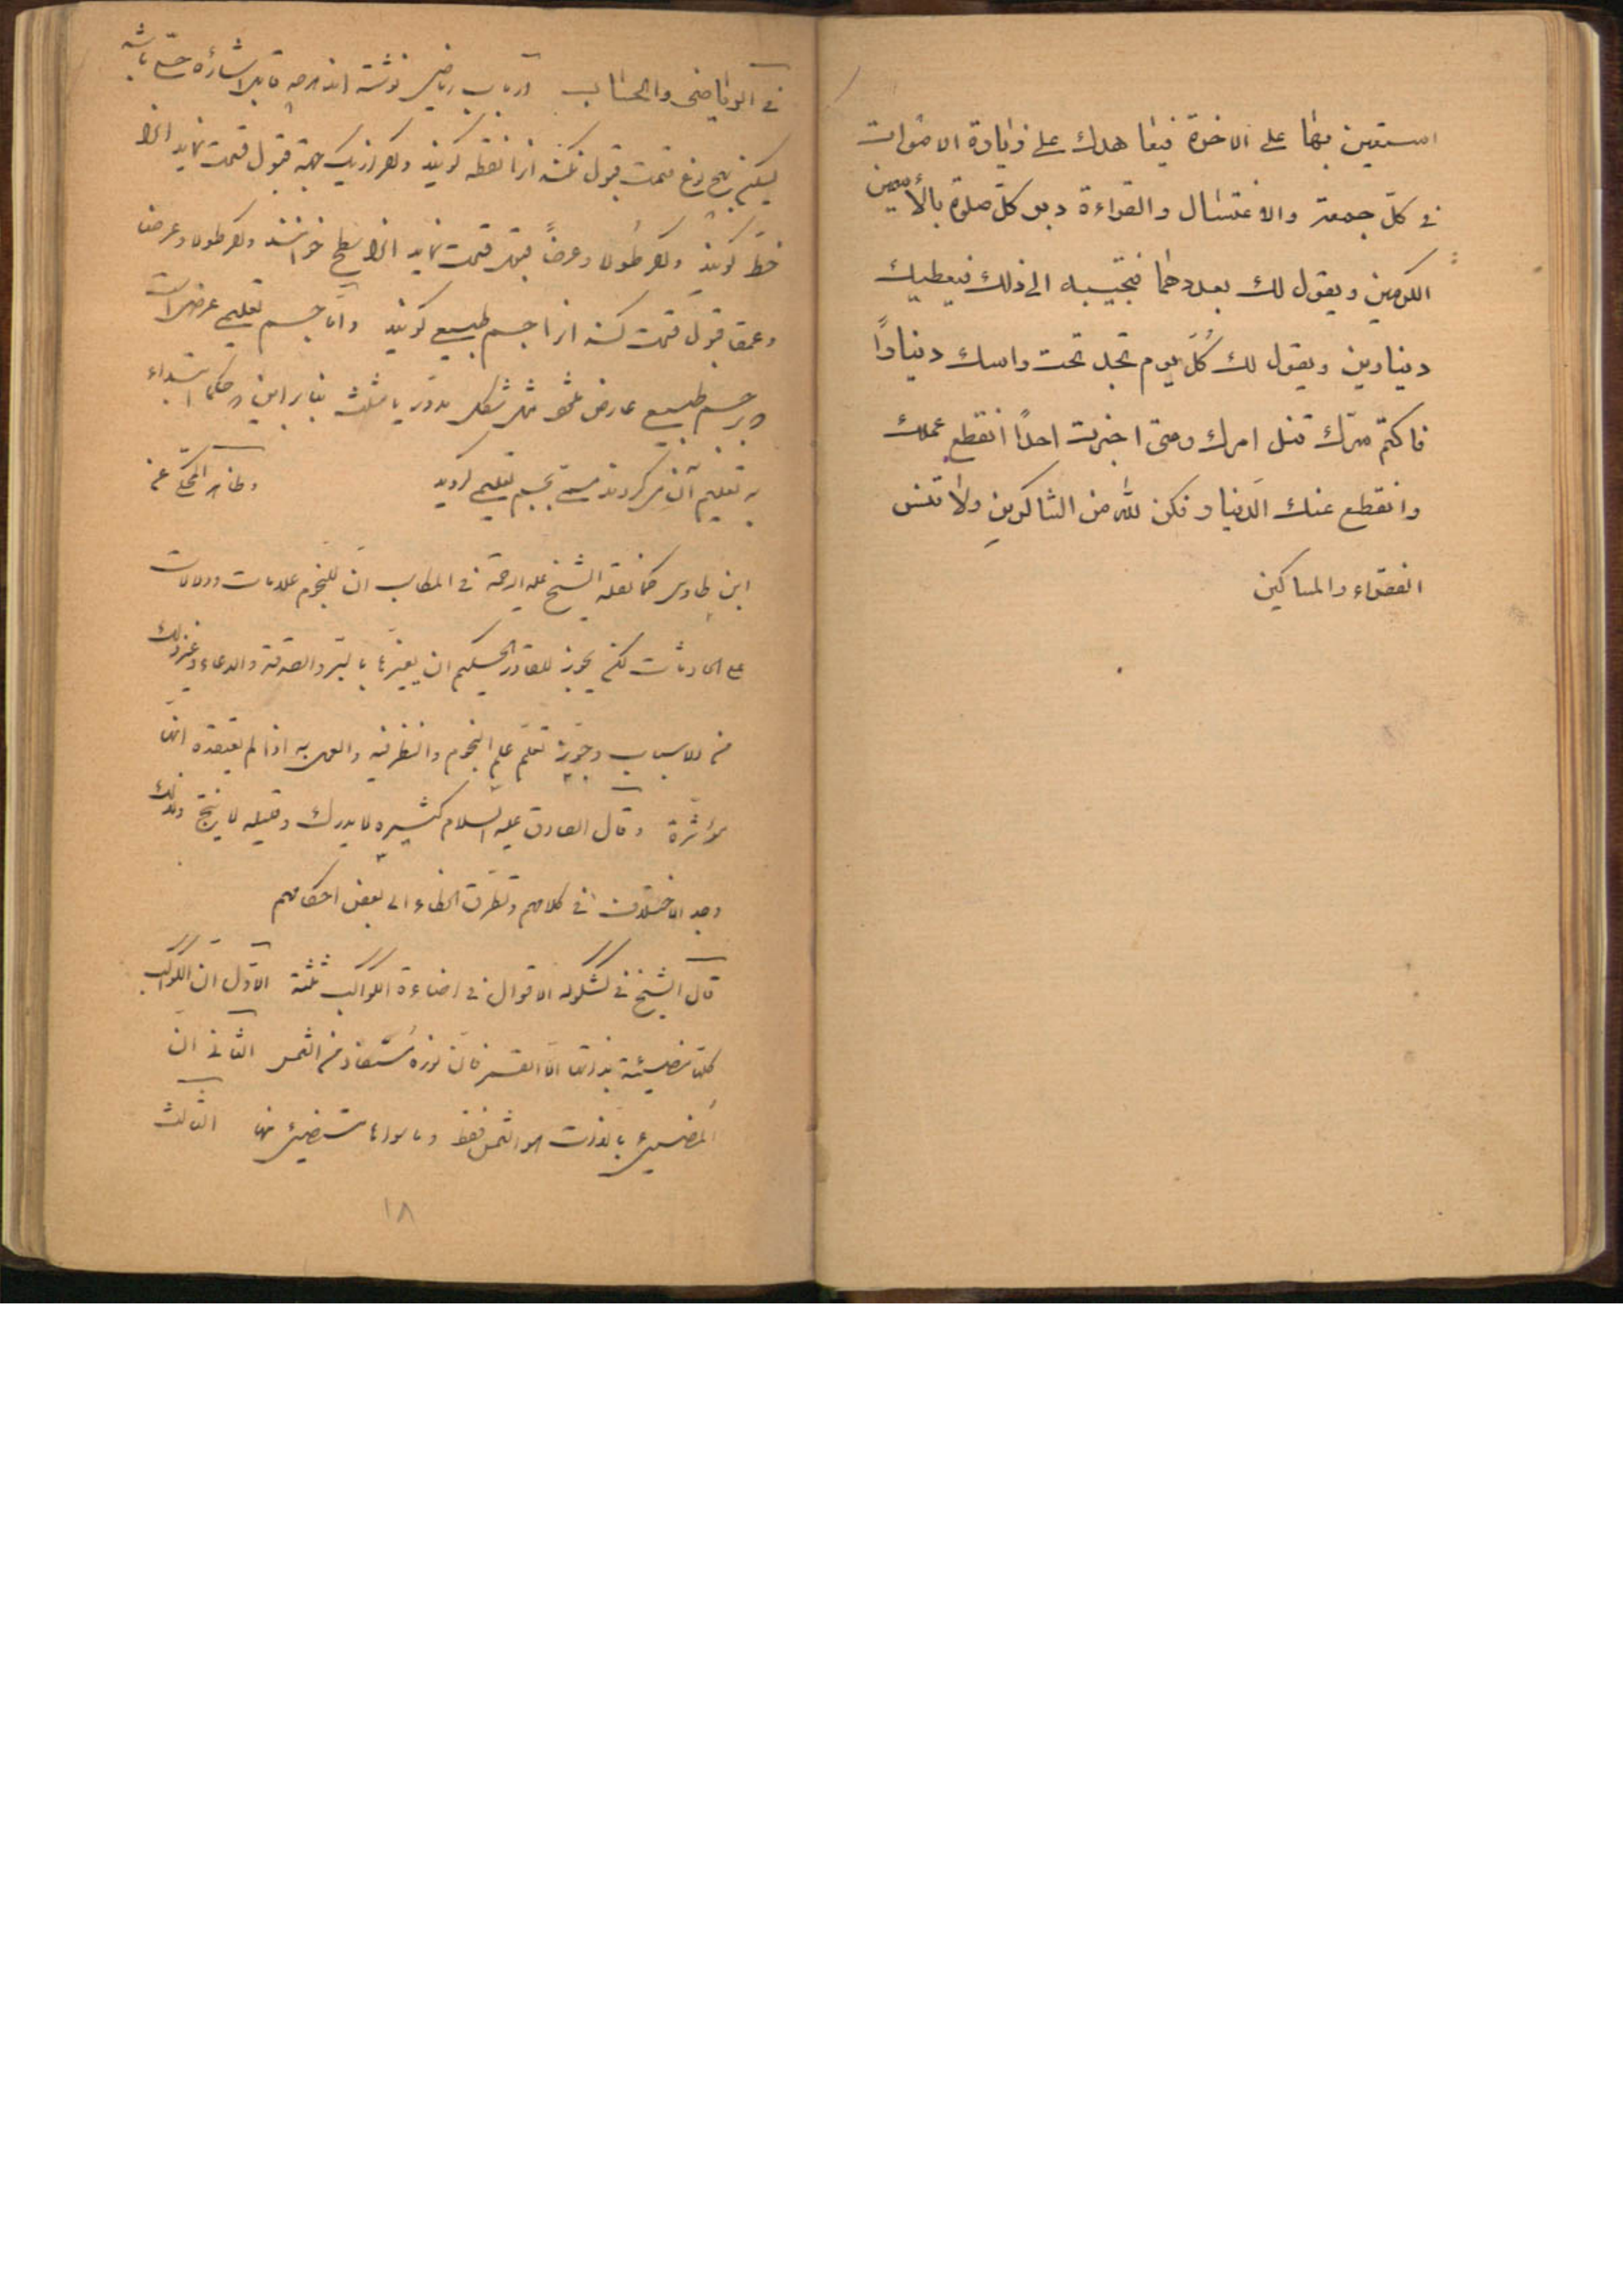 استعين بها على الاخرة فيعاهدك على زيارة الاموات
في كلّ جمعة والاغتسال والقراءة دبر كلّ صلوة بالأسمين
الكرمين ويقول لك بعددهما فتجيبه الى ذلك فيعطيك
دينارين ويقول لك كُلّ يوم تجد تحت راسك ديناراً
فاكتم سرّك تنل امرك ومتى اخبرت احداً انقطع عملك
وانقطع عنك الدنيا وفكن للّه من الشاكرين ولا تنس
الفقراء والمساكين
في الرياضى والحساب ارباب رياضى نوشته اند هرچه قابل اشاره حسّيه باشد
ليكن بهيچ نوع قسمت قبول نكند انرا نقطه كويند واكر از يك جهة قبول قسمت نمايد انرا
خطّ كويند واكر طولا وعرضاً قبول قسمت نمايد انرا سطح خوانند واكر طولا وعرضا
وعمقا قبول قسمت كند انرا جسم طبيعى كويند وامّا جسم تعليمى عرضى است
بر جسم طبيعى عارض مثل شكل مدوّر يا مثلث بنابراين حكما ابتداء
به تعليم آن ميكردند مسمّى بجسم تعليمى كرديد وظاهر المحكى عن
ابن طاوس كما نقله الشيخ عليه الرحمة في المكاسب انّ للنجوم علامات ودلالات
على الحادثات لكن يجوز للقادر الحكيم ان يغيّرها بالبرّ والصدقة والدعاء وغير ذلك
من الاسباب وجوّز تعلّم علم النجوم والنظر فيه والعمل به اذا لم يعتقد انها
مؤثرة وقال الصادق عليه السلام كثيره لا يدرك وقليله لا ينتج ولذلك
وجد الاختلاف في كلامهم وتطرّق الخطاء الى بعض احكامهم
قال الشيخ في كشكوله الاقوال في اضاءة الكواكب ثلثة الاوّل انّ الكواكب
كلها مضيئة بذواتها الّا القمر فانّ نوره مُستفاد من الشمس الثانى انّ
المضيئ بالذات هو الشمس فقط وما سواها مستضيئ منها الثالث
١٨